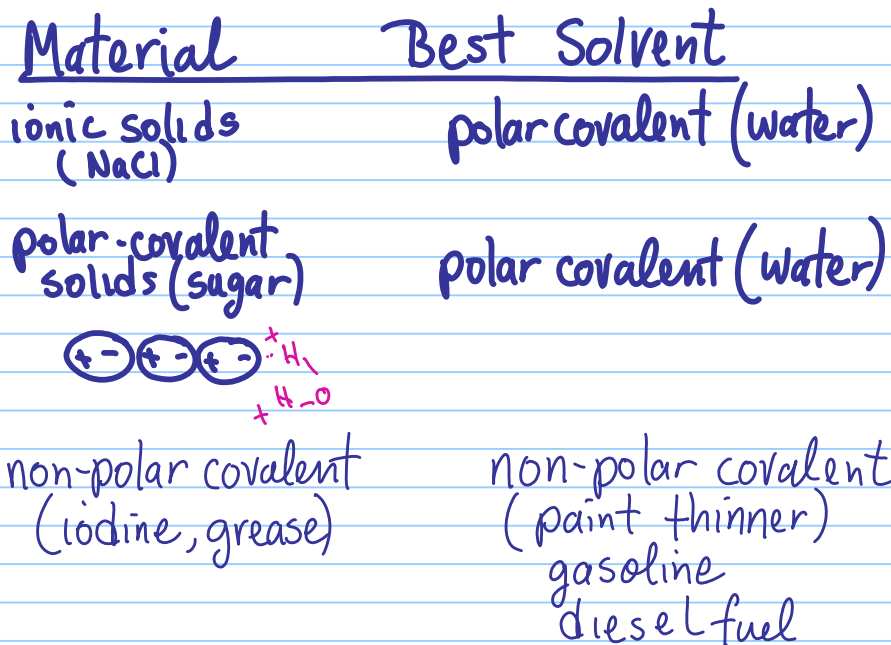 Material Best Solvent
ionic solids polar covalent (water)
(NaCl)
polar-covalent
solids (sugar) polar covalent (water)
+ - + - + - + H
+ H-O
non-polar covalent non-polar covalent
(iodine, grease) (paint thinner)
gasoline
diesel fuel